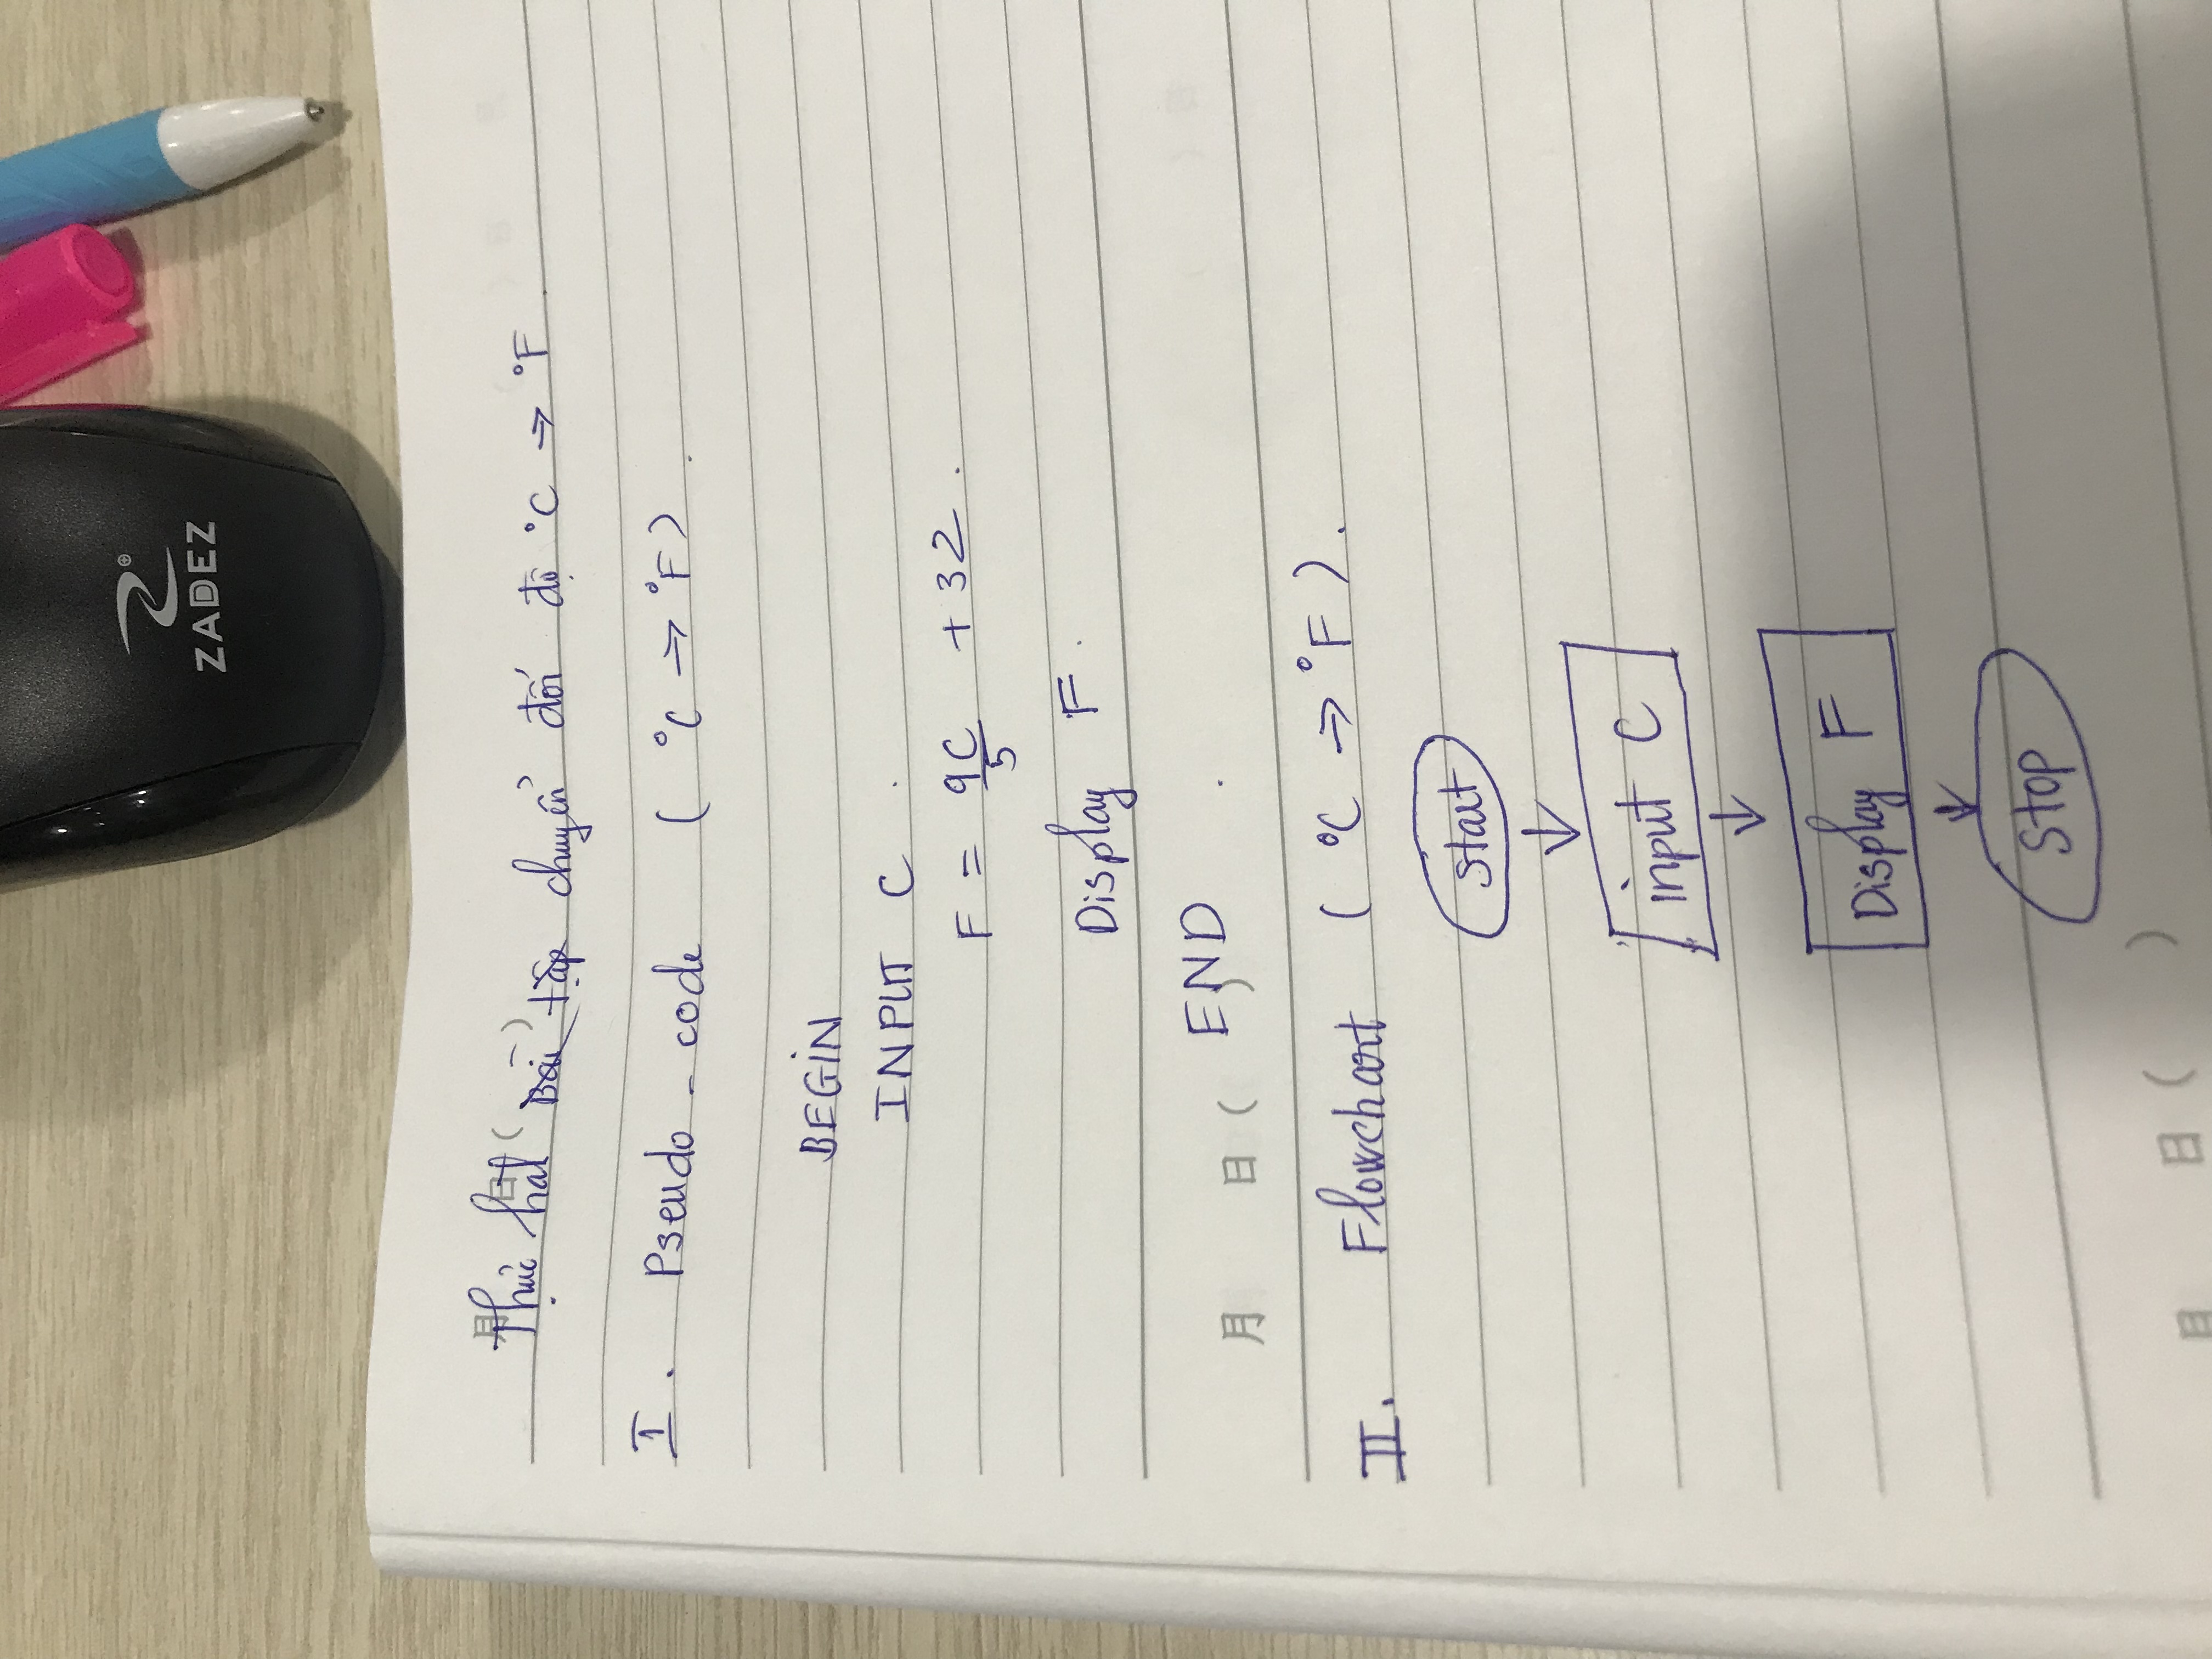 ZADEZ
月 日( )
Thực hat Bài tập chuyển đổi độ °C → °F.
I. Pseudo - code ( °C → °F ).
BEGIN
INPUT C.
F = 9C/5 + 32.
Display F.
END.
月 日( )
II. Flowchart ( °C → °F ).
Start
input C
Display F
Stop
月 日( )